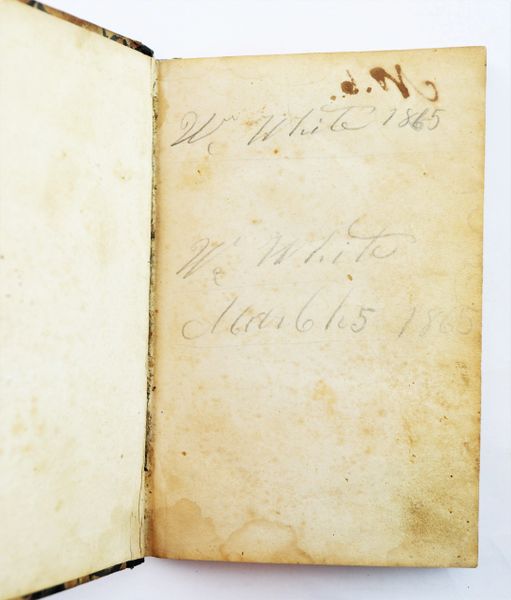 Wm White 1865
Wm White
March 5 1865